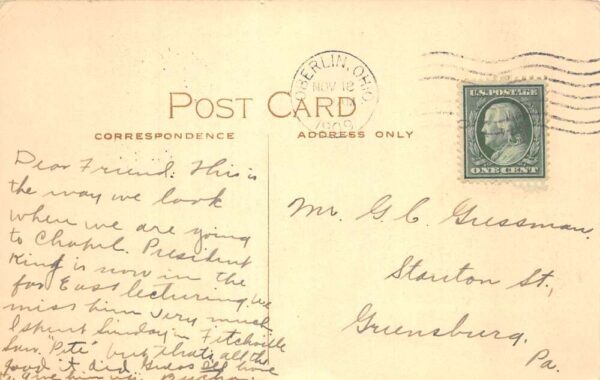 OBERLIN, OHIO
NOV 12
1909
U.S. POSTAGE
ONE CENT
POST CARD
CORRESPONDENCE
ADDRESS ONLY
Dear Friend: This is
the way we look
when we are going
to Chapel. President
King is now in the
far East lecturing. We
miss him very much
I spent Sunday in Fitchville
Saw "Pete" but that's all the
good it did
him up.
Mr. G. C. Gressman.
Stanton St,
Greensburg.
Pa.